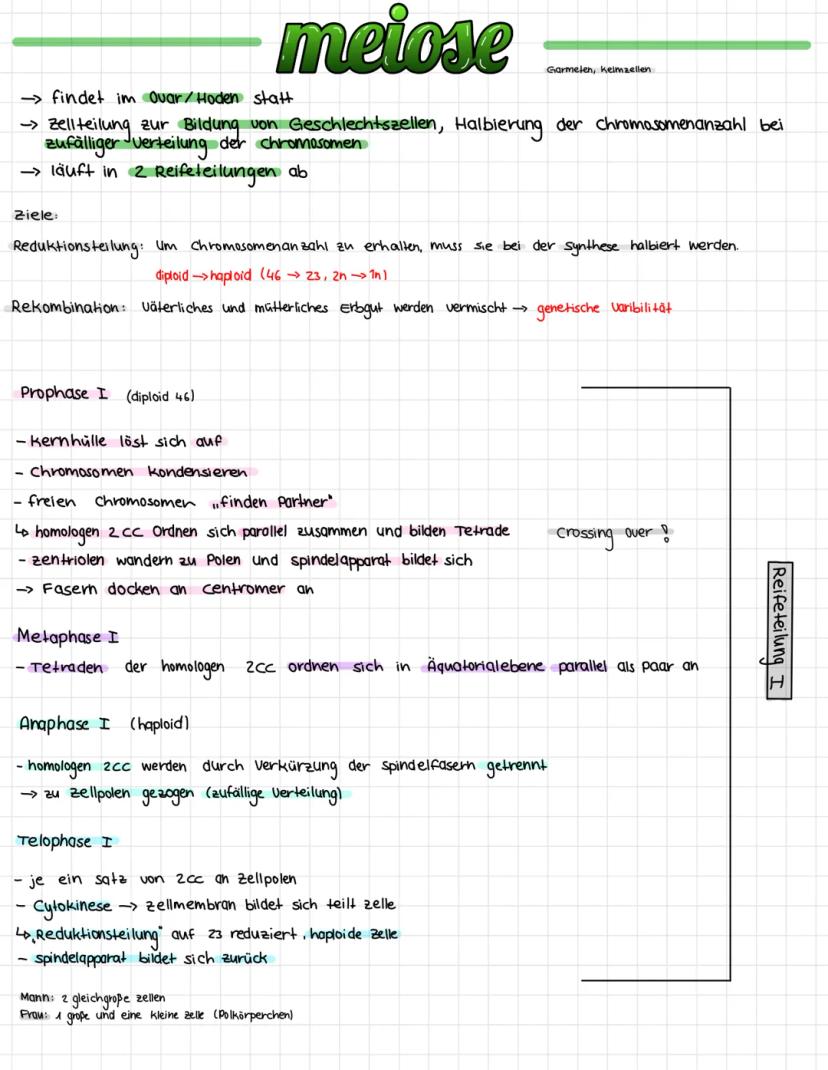 meiose
Garmeten, Keimzellen
→ findet im Ovar/Hoden statt
→ Zellteilung zur Bildung von Geschlechtszellen, Halbierung der Chromosomenanzahl bei
zufälliger Verteilung der Chromosomen
→ läuft in 2 Reifeteilungen ab
Ziele:
Reduktionsteilung: Um Chromosomenanzahl zu erhalten, muss sie bei der Synthese halbiert werden.
diploid → haploid (46 → 23, 2n → 1n)
Rekombination: Väterliches und mütterliches Erbgut werden vermischt → genetische Varibilität
Prophase I (diploid 46)
- Kernhülle löst sich auf
- Chromosomen kondensieren
- freien Chromosomen „finden Partner"
↳ homologen 2CC Ordnen sich parallel zusammen und bilden Tetrade Crossing over !
- Zentriolen wandern zu Polen und Spindelapparat bildet sich
→ Fasern docken an Centromer an
Metaphase I
- Tetraden der homologen 2CC ordnen sich in Äquatorialebene parallel als Paar an
Anaphase I (haploid)
- homologen 2CC werden durch Verkürzung der Spindelfasern getrennt
→ zu Zellpolen gezogen (zufällige Verteilung)
Telophase I
- je ein Satz von 2CC an Zellpolen
- Cytokinese → Zellmembran bildet sich teilt Zelle
↳ „Reduktionsteilung" auf 23 reduziert, haploide Zelle
- Spindelapparat bildet sich zurück
Mann: 2 gleichgroße Zellen
Frau: 1 große und eine kleine Zelle (Polkörperchen)
Reifeteilung I